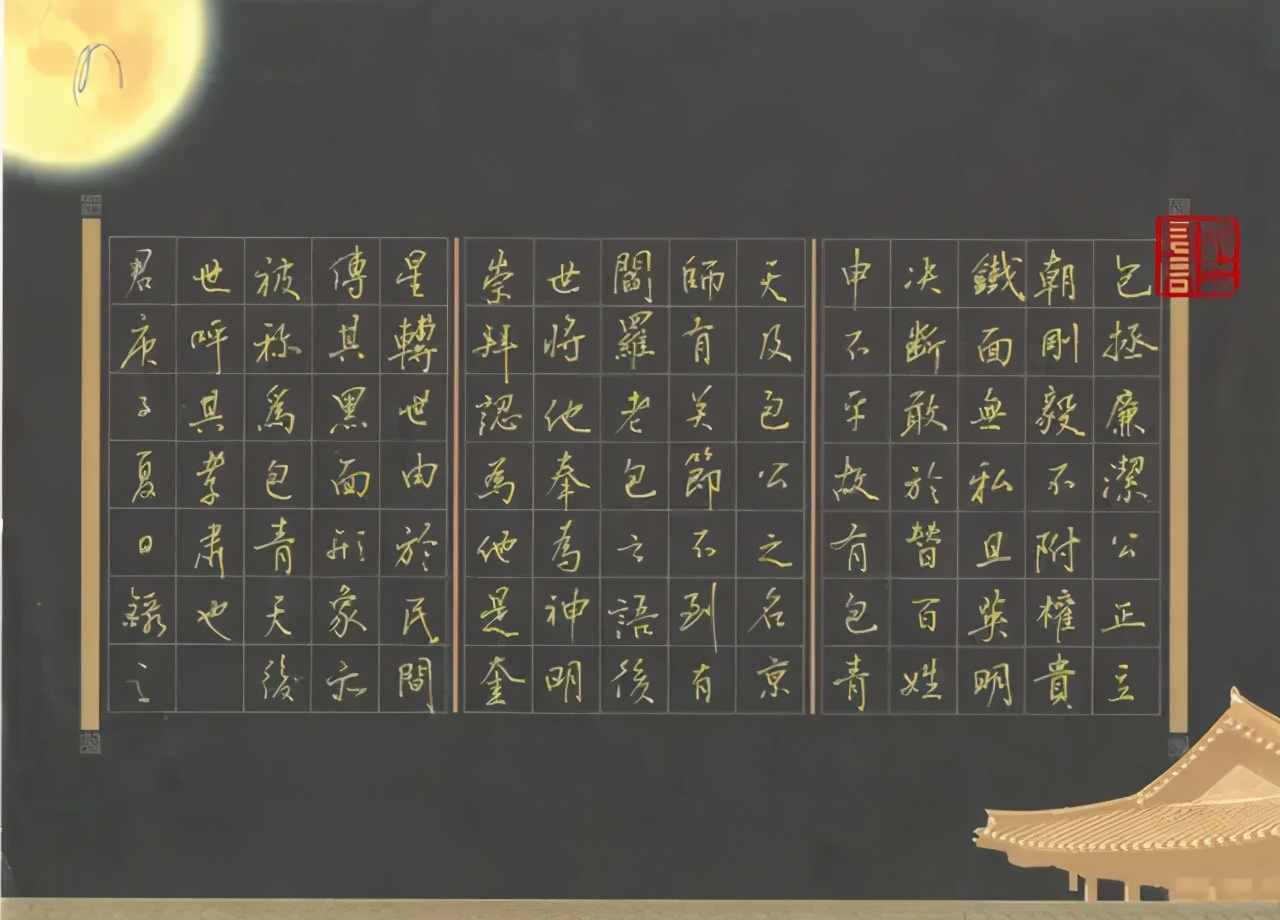 包拯廉潔公正立
朝剛毅不附權貴
鐵面無私且英明
决斷敢於替百姓
申不平故有包青
天及包公之名京
師有关節不到有
閻羅老包之語後
世將他奉為神明
崇拜認為他是奎
星轉世由於民間
傳其黑面形象亦
被称為包青天後
世呼其孝肃也
庚子夏日錄之